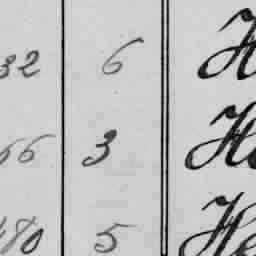 32 6 H
66 3 He
480 5 He